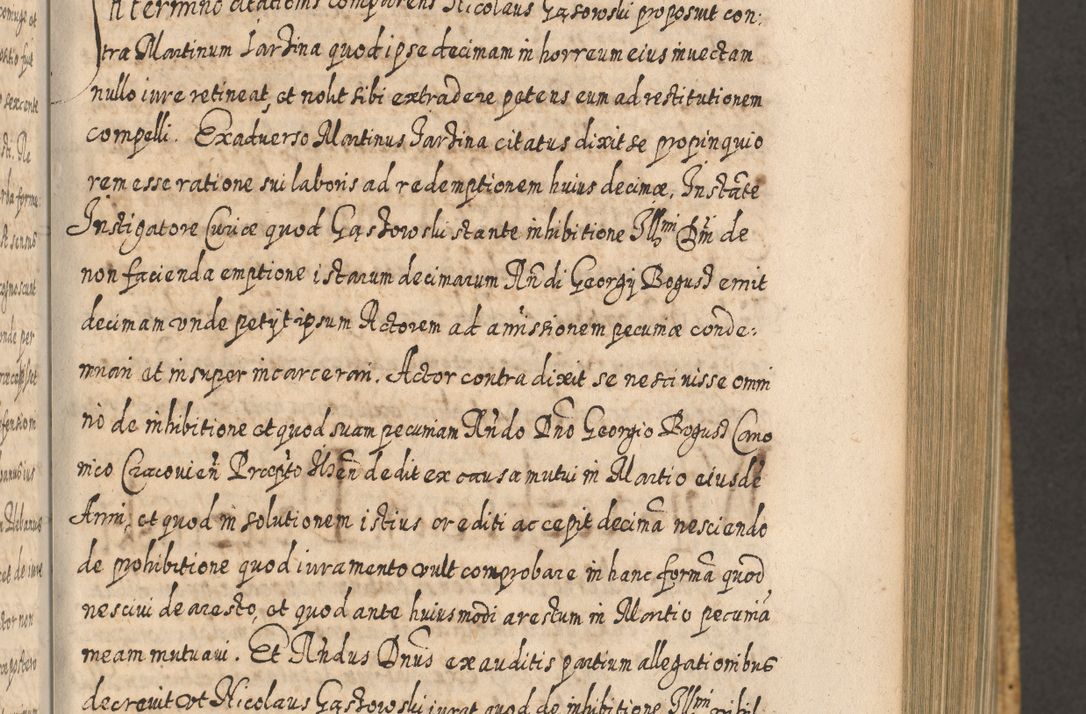 In termino citationis comparens Nicolaus Gąstowski proposuit con:
tra Martinum Jardina quod ipse decimam in horreum eius invectam
nullo iure retineat, et nolit sibi extradere petens eum ad restitutionem
compelli. Exadverso Martinus Jardina citatus dixit se propinquio
rem esse ratione sui laboris ad redemptionem huius decimæ. Instāte
Instigatore Curiæ quod Gąstowski stante inhibitione Illmi Dni de
non facienda emptione istarum decimarum Rndi Georgij Bogusł emit
decimam vnde petijt ipsum Actorem ad amissionem pecuniæ conde:
mnari et insuper incarcerari. Actor contra dixit se nescivisse omni
no de inhibitione et quod suam pecuniam Rndo Dno Georgio Bogusł Cano
nico Cracovien Præpto Ilsen dedit ex causa mutui in Martio eiusdē
Anni, et quod in solutionem istius crediti accepit decimā nesciendo
de prohibitione quod iuramento vult comprobare in hanc formā quod
nescivi de aresto, et quod ante huiusmodi arestum in Martio pecuniā
meam mutuavi. Et Rndus Dnus exauditis partium allegationibus
decrevit vt Nicolaus Gąstowski iurat quod de inhibitione Illmi nihil